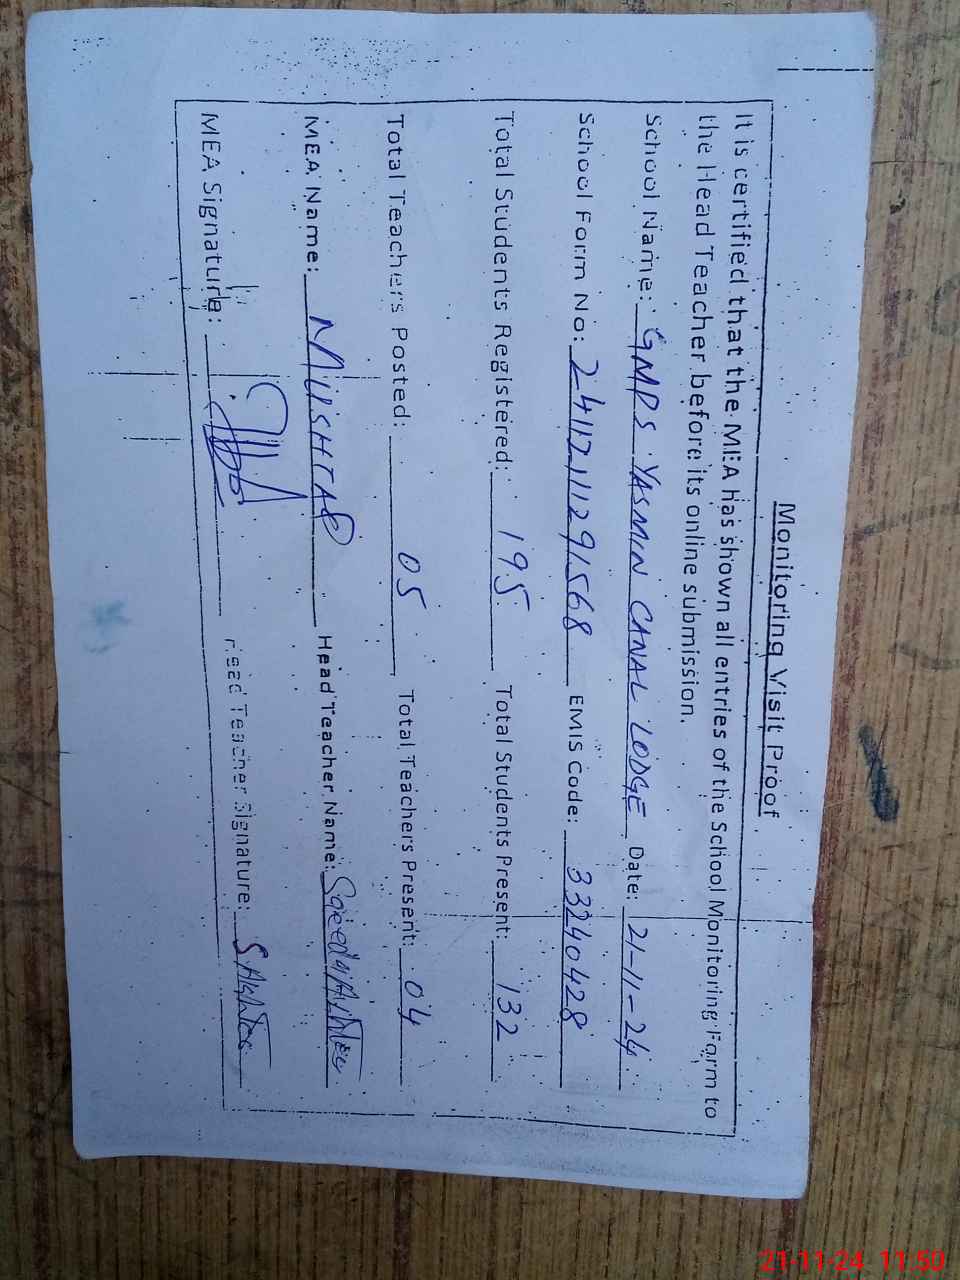 Monitoring Visit Proof
It is certified that the MEA has shown all entries of the School Monitoring Form to
the Head Teacher before its online submission.
School Name: GMPS YASMIN CANAL LODGE Date: 21-11-24
School Form No: 24112111291568 EMIS Code: 33240428
Total Students Registered: 195 Total Students Present: 132
Total Teachers Posted: 05 Total Teachers Present: 04
MEA Name: MUSHTAQ Head Teacher Name: Saeeda Akhtar
MEA Signature: Head Teacher Signature: S Akhtar
21-11-24 11:50